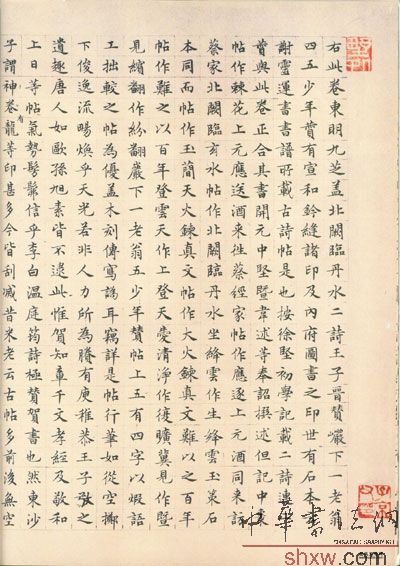 右此卷東明九芝盖北闕臨丹水二詩王子晉贊巖下一老翁
四五少年贊有宣和鈐縫諸印及内府圖書之印世有石本
謝靈運書書譜所載古詩帖是也按徐堅初學記載二詩連二
贊與此卷正合其書開元中堅暨韋述等奉詔撰述但記中
帖作棘花上元應送酒来徃蔡經家帖作應逐上元酒同来訪
蔡家北闕臨玄水帖作北闕臨丹水坐絳雲作生絳雲玉策石
本同而帖作玉簡天火鍊真文帖作大火鍊真文難以之百年
帖作難之以百年登雲天作上登天憂清净作復曠冀見作暨
見繽翻作紛翻巖下一老翁五少年贊帖上五有四字以煆語
工拙較之帖為優盖木刻傳寫譌耳竊詳是帖行筆如從空擲
下俊逸流暢煥乎天光若非人力所為賸有庾稚恭王子敬之
遺趣唐人如歐孫旭素皆不逮此惟賀知章千文孝經及敬和
上日等帖氣勢髣髴信乎李白溫庭筠詩極贊賀書也然東沙
子謂神卷有龍等印甚多今皆刮滅昔米老云古帖多前後無空
中華書法網
shxw.com